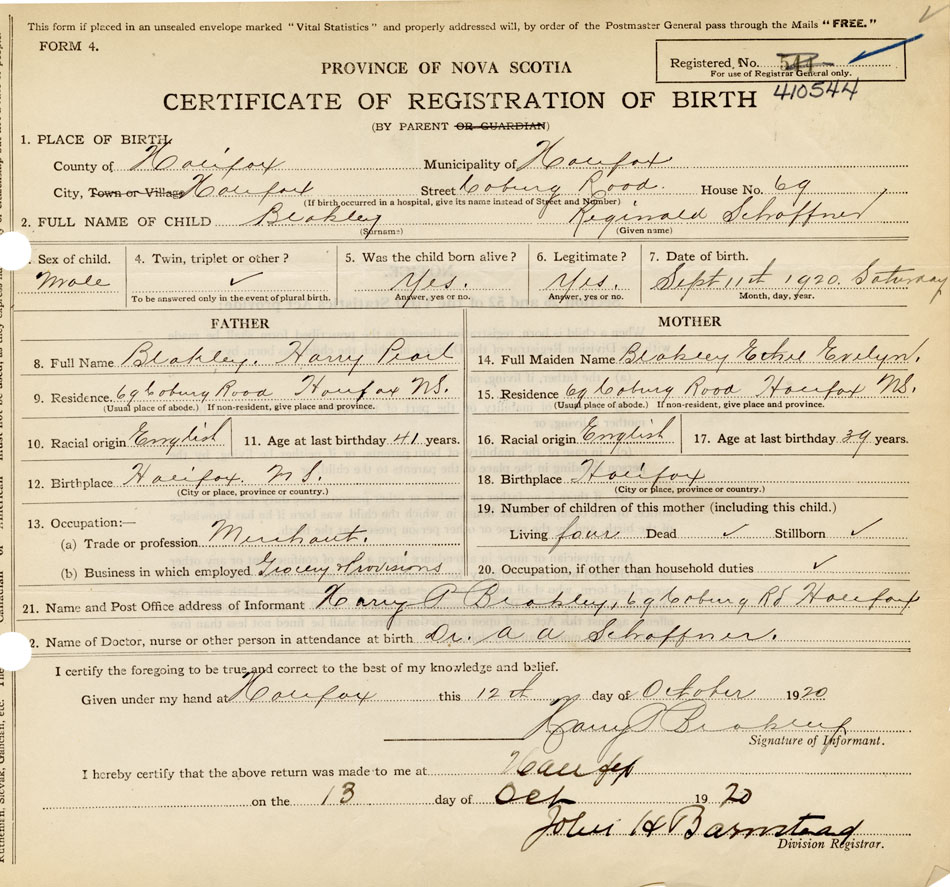 This form if placed in an unsealed envelope marked "Vital Statistics" and properly addressed will, by order of the Postmaster General pass through the Mails "FREE."
FORM 4.
Registered, No. 544
For use of Registrar General only.
410544
PROVINCE OF NOVA SCOTIA
CERTIFICATE OF REGISTRATION OF BIRTH
(BY PARENT OR GUARDIAN)
1. PLACE OF BIRTH
County of Halifax Municipality of Halifax
City, Town or Village Halifax Street Coburg Road. House No. 69
(If birth occurred in a hospital, give its name instead of Street and Number)
2. FULL NAME OF CHILD Blakley Reginald Schaffner
(Surname) (Given name)
Sex of child. 4. Twin, triplet or other? 5. Was the child born alive? 6. Legitimate? 7. Date of birth.
Male ✓ Yes. Yes. Sept 11th 1920. Saturday
To be answered only in the event of plural birth. Answer, yes or no. Answer, yes or no. Month, day, year.
FATHER MOTHER
8. Full Name Blakley. Harry Pearl 14. Full Maiden Name Blakley Ethel Evelyn.
9. Residence. 69 Coburg Road Halifax NS. 15. Residence 69 Coburg Road Halifax NS.
(Usual place of abode.) If non-resident, give place and province. (Usual place of abode.) If non-resident, give place and province.
10. Racial origin English 11. Age at last birthday 41 years. 16. Racial origin English 17. Age at last birthday 39 years.
12. Birthplace Halifax. N S. 18. Birthplace Halifax
(City or place, province or country.) (City or place, province or country.)
13. Occupation:— 19. Number of children of this mother (including this child.)
(a) Trade or profession Merchant. Living four Dead ✓ Stillborn ✓
(b) Business in which employed Grocery & Provisions 20. Occupation, if other than household duties ✓
21. Name and Post Office address of Informant Harry P Blakley, 69 Coburg Rd Halifax
2. Name of Doctor, nurse or other person in attendance at birth Dr. A A Schaffner.
I certify the foregoing to be true and correct to the best of my knowledge and belief.
Given under my hand at Halifax this 12th day of October 1920
Harry P Blakley
Signature of Informant.
I hereby certify that the above return was made to me at Halifax
on the 13 day of Oct 1920
John H Barnstead
Division Registrar.